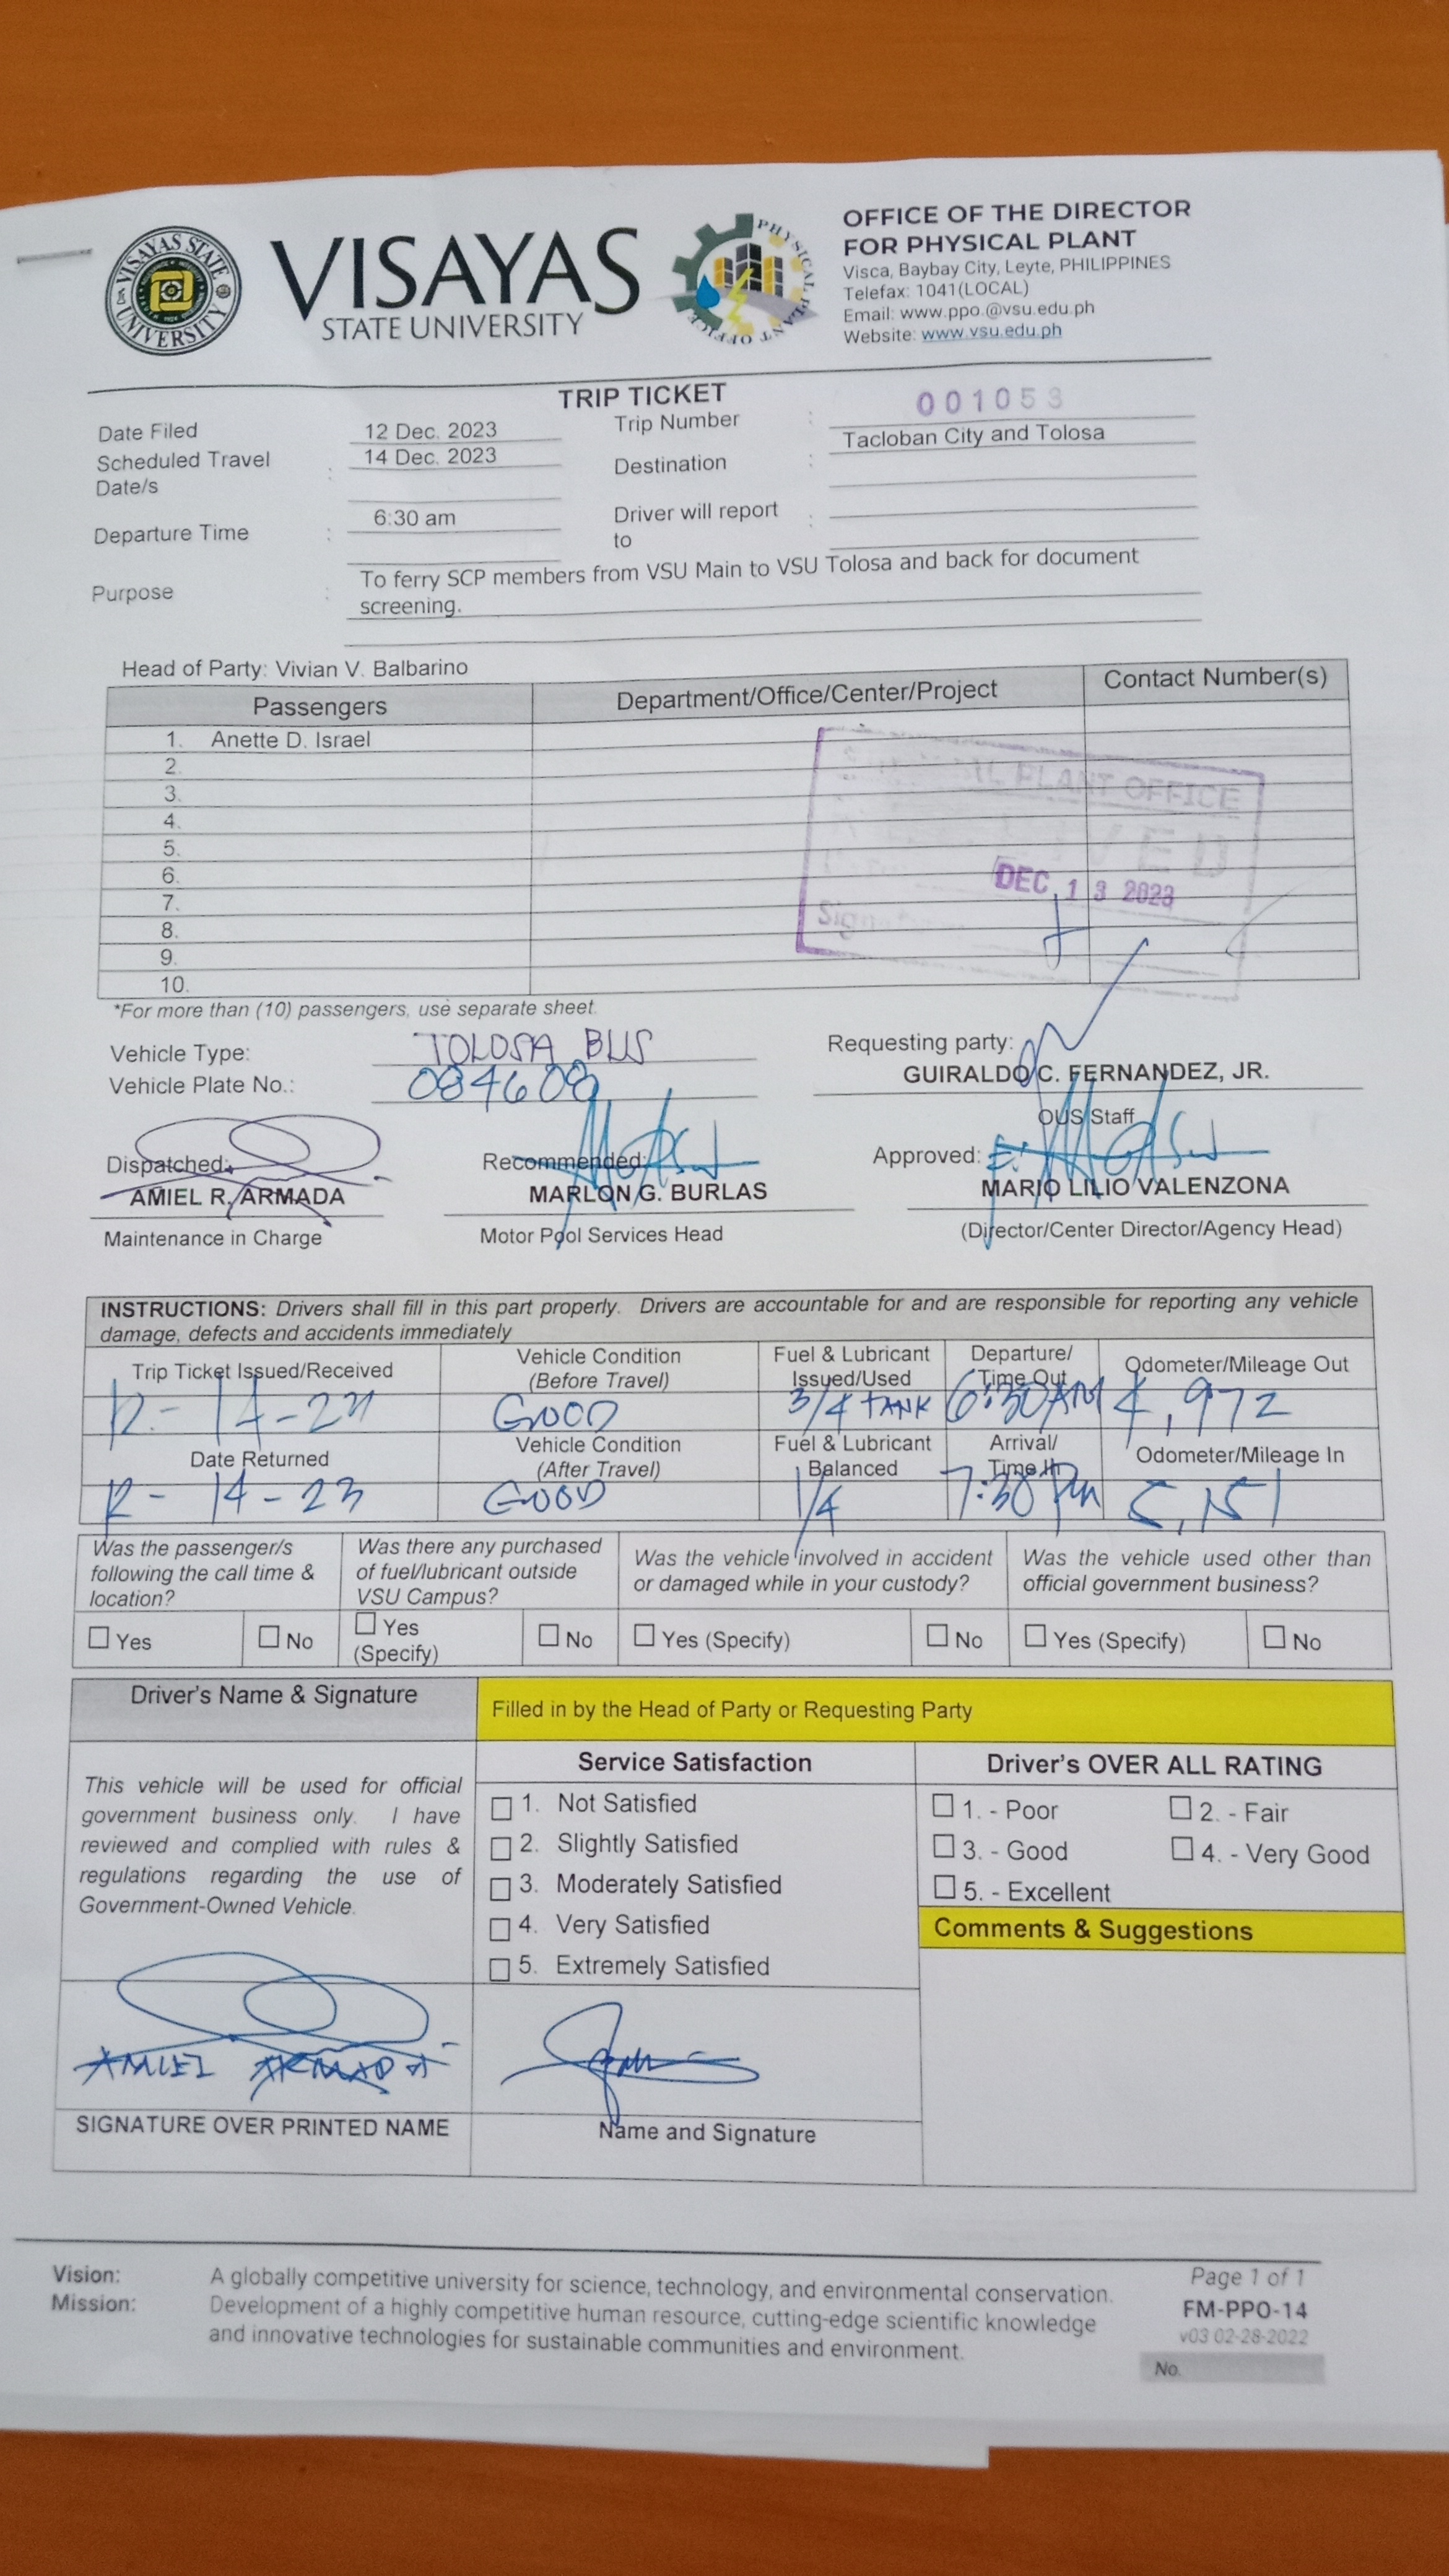 VISAYAS STATE UNIVERSITY
VISAYAS
STATE UNIVERSITY
PHYSICAL PLANT OFFICE
OFFICE OF THE DIRECTOR
FOR PHYSICAL PLANT
Visca, Baybay City, Leyte, PHILIPPINES
Telefax: 1041(LOCAL)
Email: www.ppo.@vsu.edu.ph
Website: www.vsu.edu.ph
TRIP TICKET
Date Filed 12 Dec. 2023 Trip Number : 001053
Scheduled Travel Date/s : 14 Dec. 2023 Destination : Tacloban City and Tolosa
Departure Time : 6:30 am Driver will report to :
Purpose : To ferry SCP members from VSU Main to VSU Tolosa and back for document
screening.
Head of Party: Vivian V. Balbarino
Passengers Department/Office/Center/Project Contact Number(s)
1. Anette D. Israel
2.
3.
4.
5.
6.
7.
8.
9.
10.
PLANT OFFICE
DEC 13 2023
*For more than (10) passengers, use separate sheet.
Vehicle Type: TOLOSA BUS Requesting party:
Vehicle Plate No.: 084608 GUIRALDO C. FERNANDEZ, JR.
OUS Staff
Dispatched: Recommended: Approved:
AMIEL R. ARMADA MARLON G. BURLAS MARIO LILIO VALENZONA
Maintenance in Charge Motor Pool Services Head (Director/Center Director/Agency Head)
INSTRUCTIONS: Drivers shall fill in this part properly. Drivers are accountable for and are responsible for reporting any vehicle
damage, defects and accidents immediately
Trip Ticket Issued/Received Vehicle Condition (Before Travel) Fuel & Lubricant Issued/Used Departure/ Time Out Odometer/Mileage Out
12-14-23 GOOD 3/4 TANK 6:30AM 4,972
Date Returned Vehicle Condition (After Travel) Fuel & Lubricant Balanced Arrival/ Time In Odometer/Mileage In
12-14-23 GOOD 1/4 7:30 PM 5,151
Was the passenger/s following the call time & location? Was there any purchased of fuel/lubricant outside VSU Campus? Was the vehicle involved in accident or damaged while in your custody? Was the vehicle used other than official government business?
☐ Yes ☐ No ☐ Yes (Specify) ☐ No ☐ Yes (Specify) ☐ No ☐ Yes (Specify) ☐ No
Driver's Name & Signature Filled in by the Head of Party or Requesting Party
This vehicle will be used for official
government business only. I have
reviewed and complied with rules &
regulations regarding the use of
Government-Owned Vehicle.
Service Satisfaction
☐ 1. Not Satisfied
☐ 2. Slightly Satisfied
☐ 3. Moderately Satisfied
☐ 4. Very Satisfied
☐ 5. Extremely Satisfied
Driver's OVER ALL RATING
☐ 1. - Poor ☐ 2. - Fair
☐ 3. - Good ☐ 4. - Very Good
☐ 5. - Excellent
Comments & Suggestions
AMIEL ARMADA
SIGNATURE OVER PRINTED NAME Name and Signature
Vision: A globally competitive university for science, technology, and environmental conservation.
Mission: Development of a highly competitive human resource, cutting-edge scientific knowledge
and innovative technologies for sustainable communities and environment.
Page 1 of 1
FM-PPO-14
v03 02-28-2022
No.